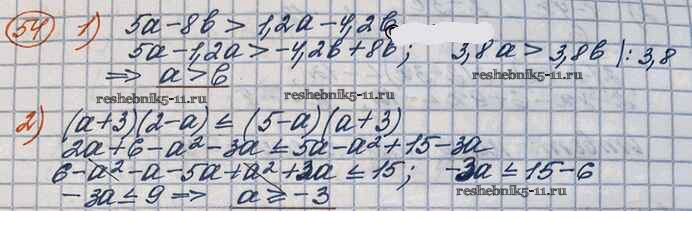 54 1) 5a-8b > 1,2a-4,2b
5a-1,2a > -4,2b+8b; 3,8a > 3,8b |: 3,8
⇒ a>b
reshebnik5-11.ru reshebnik5-11.ru reshebnik5-11.ru
2) (a+3)(2-a) ≤ (5-a)(a+3)
2a+6-a²-3a ≤ 5a-a²+15-3a
6-a²-a-5a+a²+3a ≤ 15; -3a ≤ 15-6
-3a ≤ 9 ⇒ a ≥ -3
reshebnik5-11.ru reshebnik5-11.ru